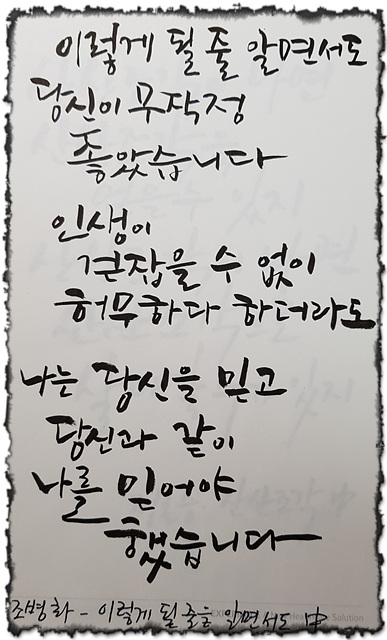 이렇게 될 줄 알면서도
당신이 무작정
좋았습니다
인생이
견잡을 수 없이
허무하다 하더라도
나는 당신을 믿고
당신과 같이
나를 믿어야
했습니다
조병화 - 이렇게 될 줄을 알면서도 中
Solution